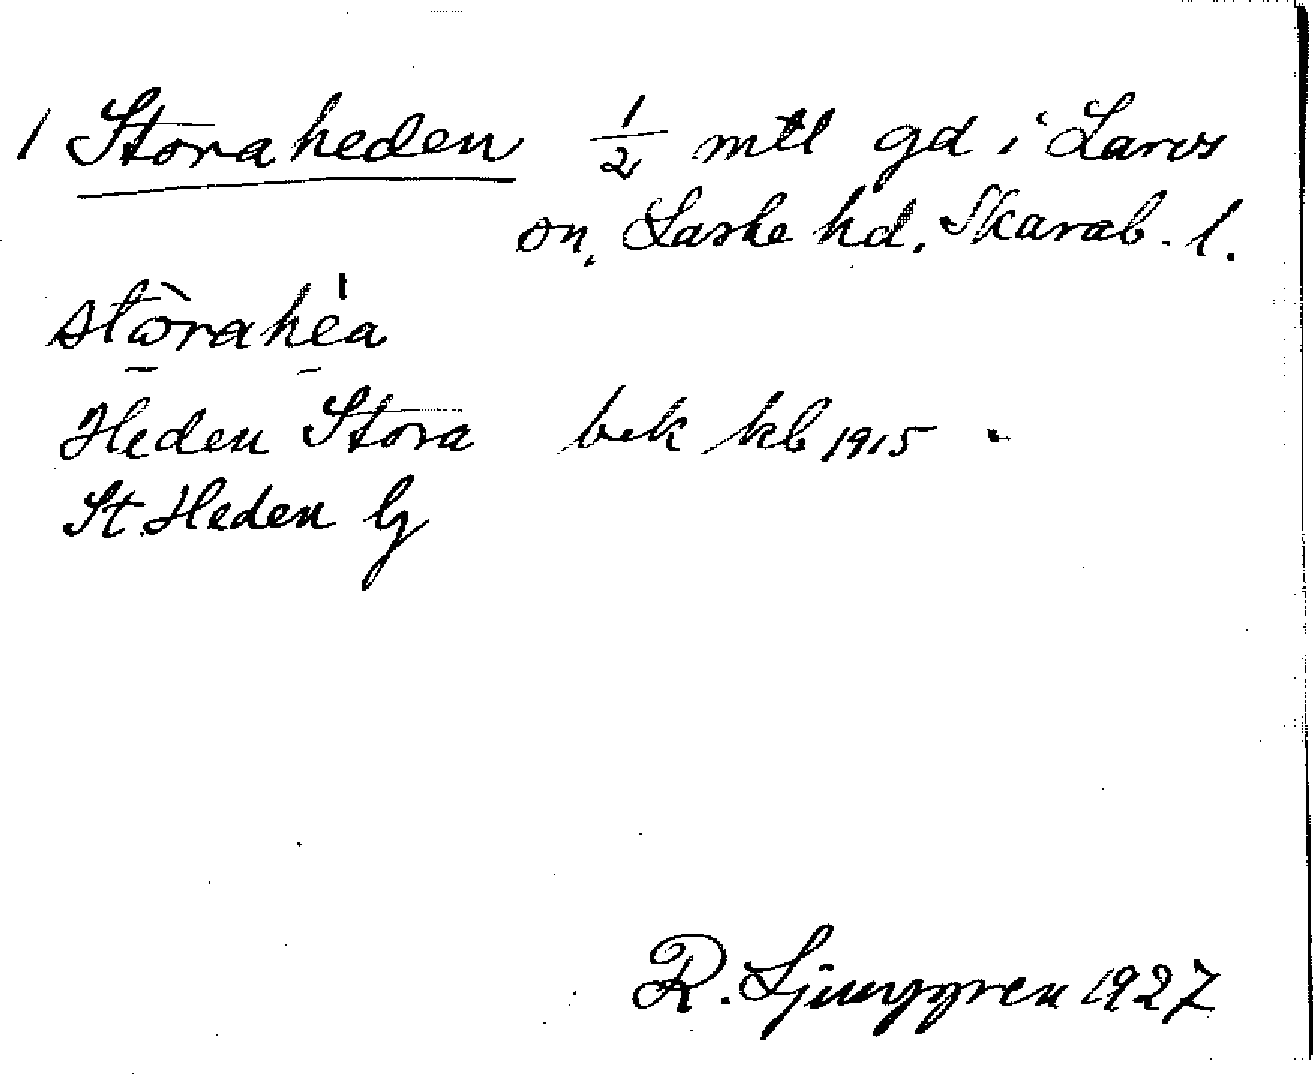 1 Storaheden 1/2 mtl gd i Larvs
sn, Laske hd. Skarab. l.
stòrahéa
Heden Stora bek kb 1915
St. Heden G
R. Ljunggren 1927